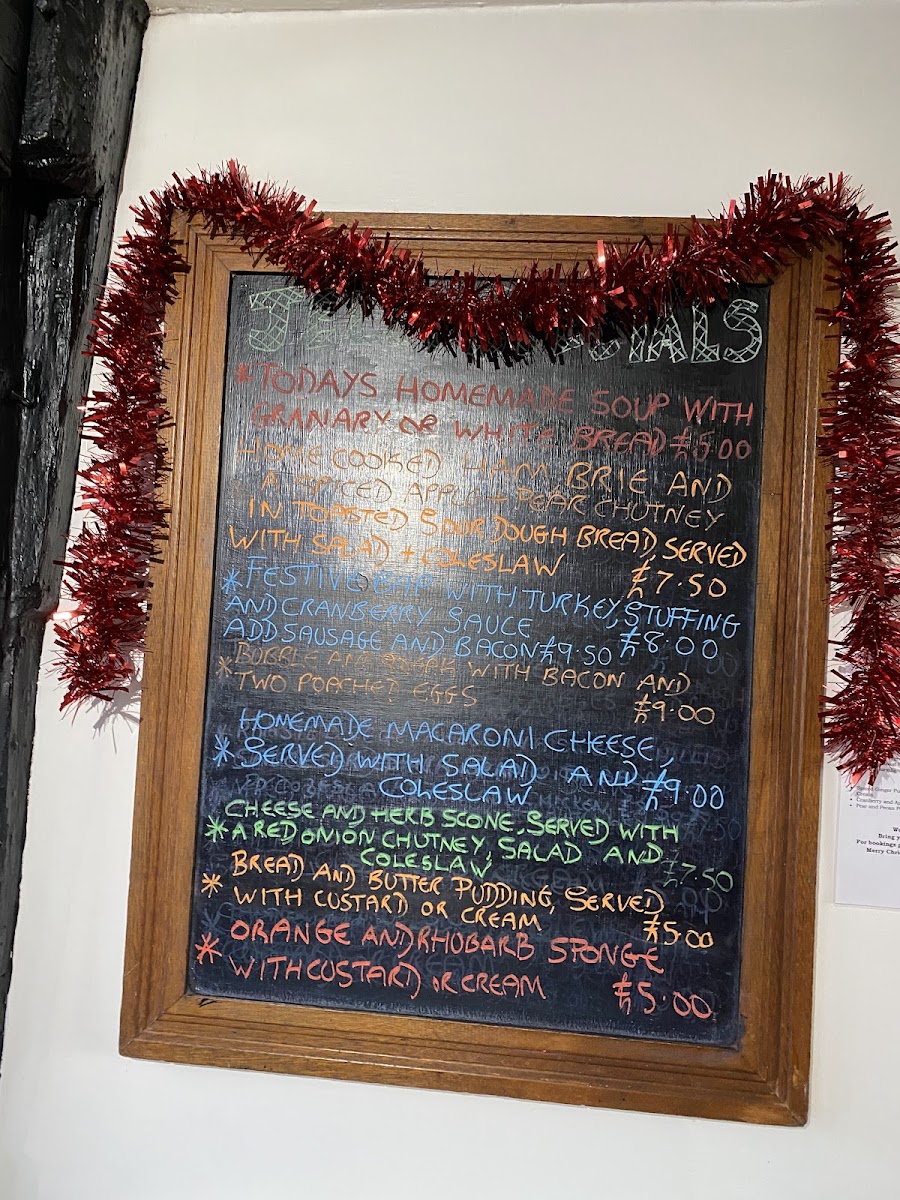 *TODAYS HOMEMADE SOUP WITH
GRANARY OR WHITE BREAD £5.00
HOME COOKED HAM BRIE AND
A SPICED APPLE + PEAR CHUTNEY
IN TOASTED SOUR DOUGH BREAD, SERVED
WITH SALAD + COLESLAW £7.50
*FESTIVE BAP WITH TURKEY, STUFFING
AND CRANBERRY SAUCE £8.00
ADD SAUSAGE AND BACON £9.50
*BUBBLE AND SQUEAK WITH BACON AND
TWO POACHED EGGS £9.00
HOMEMADE MACARONI CHEESE,
*SERVED WITH SALAD AND £9.00
COLESLAW
CHEESE AND HERB SCONE, SERVED WITH
*A RED ONION CHUTNEY, SALAD AND
COLESLAW £7.50
*BREAD AND BUTTER PUDDING, SERVED
WITH CUSTARD OR CREAM £5.00
*ORANGE AND RHUBARB SPONGE
WITH CUSTARD OR CREAM £5.00
Cranberry and
Pear and Pecan
Bring
For bookings
Merry